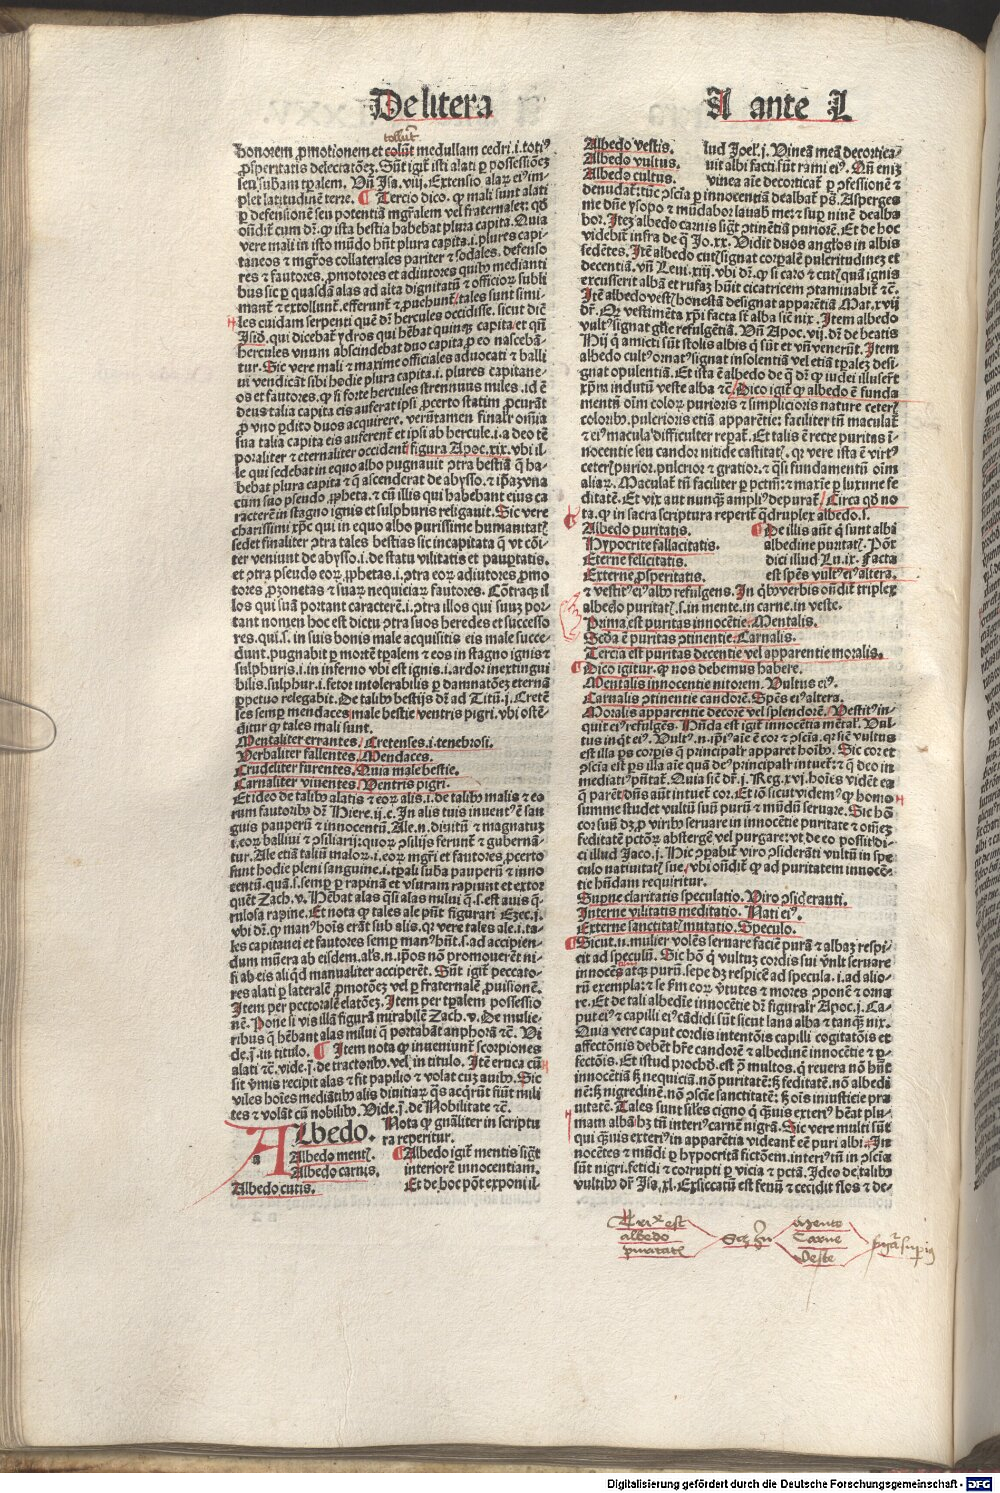 De litera
A ante L
honorem ꝓmotionem et colūt medullam cedri .i. totiꝰ
ꝓsperitatis delectatōeȝ. Sūt igit̄ isti alati ꝑ possessiōeȝ
seu subam tꝑalem. Vn̄ Isa. viij. Extensio alaꝝ eiꝰ im-
plet latitudinē terre. Tercio dico. ꝙ mali sunt alati
ꝑ defensionē seu potentiā mgr̄alem vel fraternaleȝ: qđ
on̄dit̄ cum dr̄. ꝙ ista bestia habebat plura capita. Quia
vere mali in isto mūdo hn̄t plura capita .i. plures capi-
taneos et mgr̄os collaterales pariter et sodales. defenso
res et fautores. ꝓmotores et adiutores quibꝰ medianti
bus sic ꝑ quasdā alas ad alta dignitatū et officioꝝ subli
mant̄ et extollunt̄. efferunt̄ et ꝓuehunt̄: tales sunt simi-
les cuidam serpenti quē dr̄ hercules occidisse. sicut dic̄
Isid. qui dicebat̄ ydros qui hēbat quinqꝫ capita: et qn̄
hercules vnum abscindebat duo capita ꝓ eo nasceba-
tur. Sic vere mali et maxime officiales aduocati et balli
ui vendicāt sibi hodie plura capita .i. plures capitane-
os et fautores. ꝙ si forte hercules strennuus miles .id ē
deus talia capita eis auferat ipsi ꝓcerto statim ꝓcurāt̄
ꝓ vno ꝑdito duos acquirere. verūtamen finalr̄ omīa
sua talia capita eis auferent̄ et ipsi ab hercule .i. a deo tē
poraliter et eternaliter occident̄: figura Apoc. xix. vbi il-
le qui sedebat in equo albo pugnauit ꝯtra bestiā q̄ ha-
bebat plura capita et q̄ ascenderat de abysso. et ip̄aꝫ vna
cum suo pseudo ꝓpheta. et cū illis qui habebant eius ca
racterē in stagno ignis et sulphuris religauit. Sic vere
charissimi xp̄c qui in equo albo purissime humanitat̄
sedet finaliter ꝯtra tales bestias sic incapitata q̄ vt cōi-
ter veniunt de abysso .i. de statu vilitatis et pauꝑtatis.
et ꝯtra pseudo eoꝝ ꝓphetas .i. ꝯtra eoꝝ adiutores ꝓmo
tores ꝓzonetas et suaꝝ nequiciaꝝ fautores. Cōtraqꝫ il
los qui suā portant caracterē .i. ꝯtra illos qui suuꝫ por-
tant nomen hoc est dictu ꝯtra suos heredes et successo
res. qui .s. in suis bonis male acquisitis eis male succe-
dunt. pugnabit ꝑ mortē tꝑalem et eos in stagno ignis et
sulphuris .i. in inferno vbi est ignis .i. ardor inextingui
bilis. sulphur .i. fetor intolerabilis ꝑ damnatōeȝ eternā
ꝑpetuo relegabit. De talibꝰ bestijs dr̄ ad Titū .j. Creten̄
ses semꝑ mendaces male bestie ventris pigri. vbi ostē-
dit̄ur ꝙ tales mali sunt.
Mentaliter errantes, Cretenses .i. tenebrosi.
Verbaliter fallentes, Mendaces.
Crudeliter furentes, Quia male bestie.
Carnaliter viuentes, Ventris pigri.
Et ideo de talibꝰ alatis et eoꝝ alis .i. de talibꝰ malis et eo
rum fautoribꝰ dr̄ Hiere. ij. c. In alis tuis inuentꝰ ē san
guis pauperū et innocentū. Ale .n. diuitū et magnatuꝫ
.i. eoꝝ balliui et ꝯsiliarij: quoꝝ ꝯsilijs ferunt̄ et gubernā-
tur. Ale etiā talium maloꝝ .i. eoꝝ mgr̄i et fautores ꝓcerto
sunt hodie pleni sanguine .i. tꝑali suba pauperū et inno
centū. quā .s. semꝑ ꝑ rapinā et vsuram rapiunt et extor
quēt̄ Zach. v. Hēbat alas q̄si alas milui q̄ .s. est auis q̄-
rulosa rapine. Et nota ꝙ tales ale pn̄t figurari Ezec. j.
vbi dr̄. ꝙ manꝰ hoīs erāt sub alis. qꝛ vere tales ale .i. ta-
les capitanei et fautores semꝑ manꝰ hn̄t .s. ad accipien-
dum mūera ab eisdem. als .n. ip̄os nō promouerēt ni-
si ab eis aliqđ manualiter acciperēt. Sūt igit̄ peccato-
res alati ꝑ lateralē ꝓmotōeȝ vel ꝑ fraternalē ꝓuisionē.
Item per pectoralē elatōeȝ. Item per tꝑalem possessio
nē. Pone si vis illā figurā mirabilē Zach. v. De mulie-
ribus q̄ hēbant alas milui q̄ portabāt anphorā ⁊c. Vi
de .j. in titulo. Item nota ꝙ inueniunt̄ scorpiones
alati ⁊c. vide .j. de tractoribꝰ. vel in titulo. Itē eruca cū
sit vīmis recipit alas et fit papilio et volat cuꝫ auibꝰ. Sic
viles hoīes mediātibꝰ alis diuitiaꝝ q̄s acqrūt fiūt mili
tes et volāt cū nobilibꝰ. Vide .j. de Nobilitate ⁊c.
Albedo. Nota ꝙ gn̄aliter in scriptu
ra reperitur.
Albedo ment̄. Albedo igit̄ mentis sigt̄
Albedo carnis. interiorē innocentiam.
Albedo cutis. Et de hoc pōt exponi il-
Albedo vestis. lud Joel .j. Vineā meā decortica-
Albedo vultus. uit albi facti sūt rami eiꝰ. Qn̄ eniꝫ
Albedo cultus. vinea aīe decorticat̄ ꝑ ꝯfessionē et
denudat̄: tūc ꝯscīa ꝑ innocentiā dealbat̄ ps̄. Asperges
me dn̄e ysopo et mūdabor lauabꝭ me: et suꝑ niuē dealba
bor. Iteꝫ albedo carnis sigt̄ ꝯtinētiā puriorē. Et de hoc
videbit̄ infra de q̄ Jo. xx. Vidit duos angl̄os in albis
sedētes. Itē albedo cut̄ signat corꝑalē pulcritudineȝ et
decentiā. vn̄ Leui. xiij. vbi dr̄. ꝙ si caro et cut̄ quā ignis
excusserit albā et rufaꝫ hūit cicatricem ꝯtaminabit̄ ⁊c.
Itē albedo vest̄ honestā designat apparētiā Mat. xvij
dr̄. Qꝛ vestimēta xp̄i facta st̄ alba sic̄ nix. Item albedo
vultꝰ signat gl̄ie refulgētiā. Vn̄ Apoc. vij. dr̄ de beatis
Hij q̄ amicti sūt stolis albis q̄ sūt et vn̄ venerūt. Item
albedo cultꝰ ornatꝰ signat insolentiā vel etiā tꝑaleȝ desi-
gnat opulentiā. Et ista ē albedo de q̄ dr̄ ꝙ iudei illuserūt
xp̄m indutū veste alba ⁊c. Dico igit̄ ꝙ albedo ē funda
mentū oīm coloꝝ purioris et simplicioris nature ceter̄
coloribꝰ. pulcrioris etiā apparētie: faciliter tn̄ maculat̄
et eiꝰ macula difficulter reꝑat̄. Et talis ē recte puritas ī-
nocentie seu candor nitide castitat̄. qꝛ vere ista ē virtꝰ
ceter̄ purior. pulcrior et gratior. et q̄si fundamentū oīm
aliaꝝ. Maculat̄ tn̄ faciliter ꝑ pctm̄: et maxīe ꝑ luxurie fe
ditatē. Et vix aut nunqꝫ ampliꝰ depurat̄. Circa qđ no
ta. ꝙ in sacra scriptura reperit̄ q̄druplex albedo .s.
Albedo puritatis. De illis aūt q̄ sunt albi
Hypocrite fallacitatis. albedine puritat̄. Pōt
Eterne felicitatis. dici illud Lu. ix. Facta
Externe ꝓsperitatis. est spēs vultꝰ eiꝰ altera.
et vestitꝰ eiꝰ albꝰ refulgens. In q̄bꝰ verbis on̄dit̄ triplex
albedo puritat̄ .s. in mente. in carne. in veste.
Prima est puritas innocētie, Mentalis.
Secđa ē puritas ꝯtinentie, Carnalis.
Tercia est puritas decentie vel apparentie moralis.
Dico igitur. ꝙ nos debemus habere.
Mentalis innocentie nitorem. Vultus eiꝰ.
Carnalis ꝯtinentie candorē. Spēs eiꝰ altera.
Moralis apparentie decorē vel splendorē. Vestitꝰ in-
quit eiꝰ refulgēs. Hn̄da est igit̄ innocētia mētal̄. Vul-
tus inqt̄ eiꝰ. Vultꝰ .n. ip̄iꝰ aīe ē cor et ꝯscīa. qꝛ sic̄ vultus
est illa ꝑs corꝑis q̄ principalr̄ apparet hoībꝰ. Sic cor et
ꝯscīa est ꝑs illa aīe quā deꝰ principalr̄ intuet̄: et q̄ deo im
mediatiꝰ pn̄tat̄. Quia sic̄ dr̄ .j. Reg. xvj. hoīes vidēt ea
q̄ parēt: dn̄s aūt intuet̄ cor. Et iō sicut videmꝰ ꝙ homo
summe studet vultū suū purū et mūdū seruare. Sic hō
cor suū dꝫ ꝓ viribꝰ seruare in innocētie puritate et om̄eȝ
feditatē pctōꝝ abstergē vel purgare: vt de eo possit di-
ci illud Jaco. j. Hic ꝯꝑabit̄ viro ꝯsiderāti vultū in spe
culo natiuitat̄ sue, vbi on̄dit̄ ꝙ ad puritatem innocē-
tie hn̄dam requiritur.
Superne claritatis speculatio. Viro ꝯsideranti.
Interne vilitatis meditatio. Nati eiꝰ.
Externe sanctitat̄ imitatio. Speculo.
Sicut .n. mulier volēs seruare faciē purā et albaꝫ respi-
cit ad speculū. Sic hō q̄ vultuꝫ cordis sui vult seruare
innocēs atqꝫ purū. sepe dꝫ respicē ad specula .i. ad alio-
rū exempla: et se scdm̄ eoꝝ v̄tutes et mores ꝯponē et orna
re. Et de tali albedīe innocētie dr̄ figuralr̄ Apoc. j. Ca-
put eiꝰ et capilli eiꝰ cādidi sūt sicut lana alba et tanqꝫ nix.
Quia vere caput cordis intentōis capilli cogitatōis et
affectōnis debēt hr̄e candorē et albedinē innocētie et ꝑ-
fectōis. Et istud ꝓchdo. est ꝓ multos. q̄ reuera nō hn̄t
innocētiā ꝫ nequiciā. nō puritatē: ꝫ feditatē. nō albedi
nē: ꝫ nigredinē. nō ꝯscīe sanctitatē: ꝫ oīs iniusticie pra
uitatē. Tales sunt siles cigno q̄ q̄uis exteriꝰ hēat plu-
mam albā: hꝫ tn̄ interiꝰ carnē nigrā. Sic vere multi sūt
qui q̄uis exteriꝰ in apparētia videant̄ eē puri albi. In-
nocētes et mūdi ꝑ hypocrit̄ fictōem. interiꝰ tn̄ in ꝯscīa
sūt nigri. fetidi et corrupti ꝑ vicia et pctā. Ideo de. talibꝰ
vultibꝰ dr̄ Isa. xl. Exsiccatū est fenū et cecidit flos et de-
Triꝑx est
albedo
puritatis
Mente
Carne
Veste